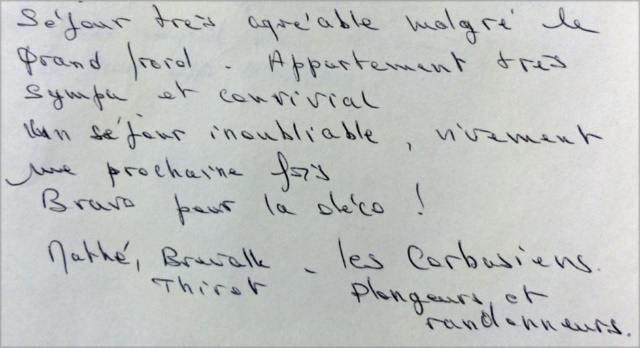 Séjour très agréable malgré le
grand froid. Appartement très
sympa et convivial
Un séjour inoubliable, vivement
une prochaine fois
Bravo pour la déco !
les Corbasiens.
Thirot Plongeurs et
randonneurs.